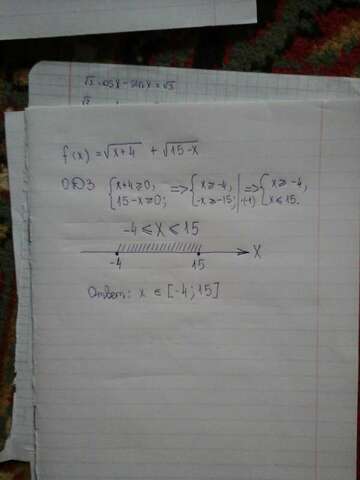 √3 cos x - sin x = √3
f(x) = √x+4 + √15-x
ОДЗ { x+4≥0, 15-x≥0; => { x≥-4, -x≥-15; |·(-1) => { x≥-4, x≤15.
-4 ≤ x ≤ 15
-4 15 x
Ответ: x ∈ [-4; 15]